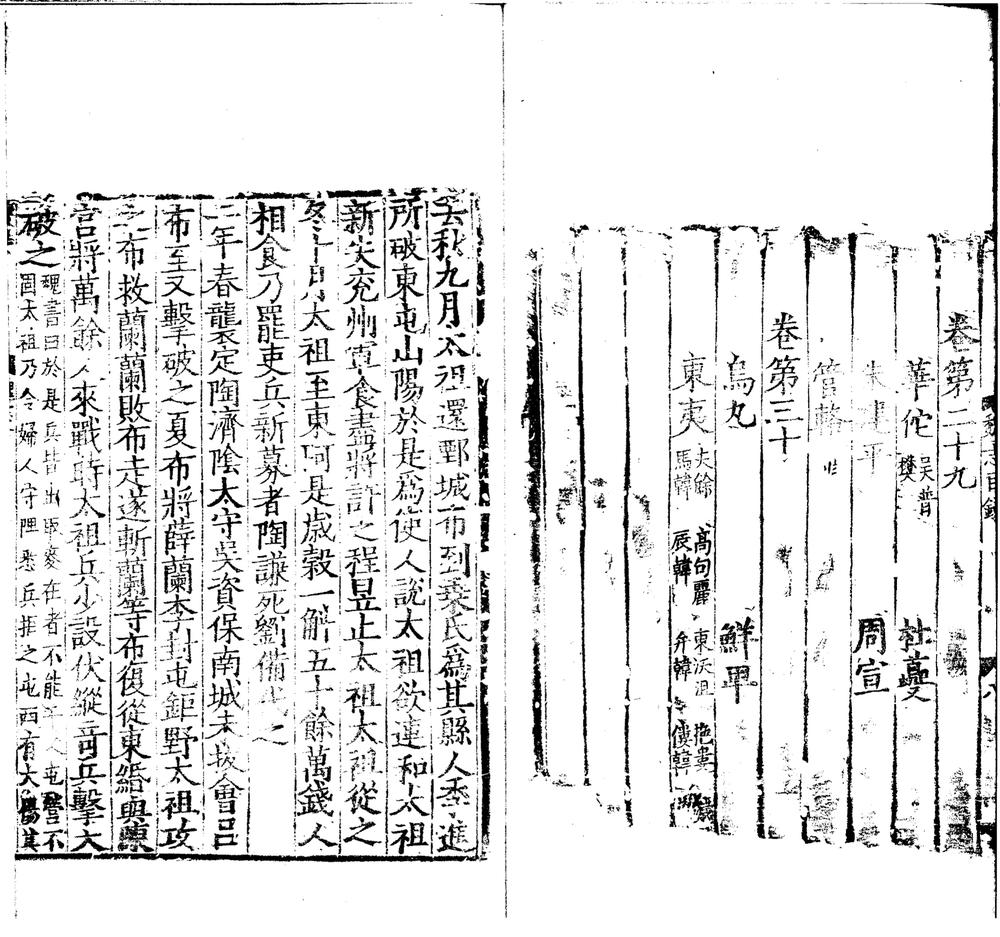 魏志目錄 八
卷第二十九
華佗 吳普 樊 杜夔
朱建平 周宣
管輅
卷第三十
烏丸 鮮卑
東夷 夫餘 高句麗 東沃沮 挹婁 濊
馬韓 辰韓 弁韓
去秋九月太祖還鄄城布到乘氏爲其縣人李進
所破東屯山陽於是爲使人說太祖欲連和太祖
新失兖州軍食盡將許之程昱止太祖太祖從之
冬十月太祖至東阿是歲穀一斛五十餘萬錢人
相食乃罷吏兵新募者陶謙死劉備代之
二年春襲定陶濟陰太守吳資保南城未拔會呂
布至又擊破之夏布將薛蘭李封屯鉅野太祖攻
之布救蘭蘭敗布走遂斬蘭等布復從東緡與陳
宮將萬餘人來戰時太祖兵少設伏縱奇兵擊大
破之 魏書曰於是兵皆出取麥在者不能千人屯營不
固太祖乃令婦人守陴悉兵拒之屯西有大隄其